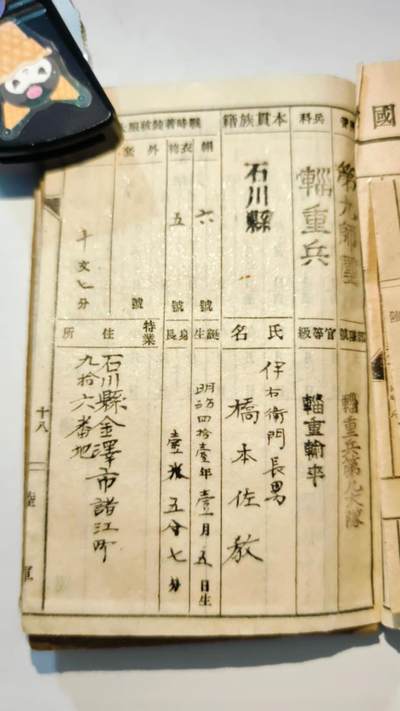 國
第九師管
兵科
輜重兵
本貫族籍
石川縣
戰時著裝被服
帽
六
號
衣袴
五
號
外套
號
十文七分
輜重兵第九大隊
官等級
輜重輸卒
氏名
伊右衛門長男
橋本佐敎
誕生
明治四拾壹年壹月五日生
身長
壹米五分七分
特業
住所
石川縣金澤市諸江町
九拾六番地
十八
陸軍